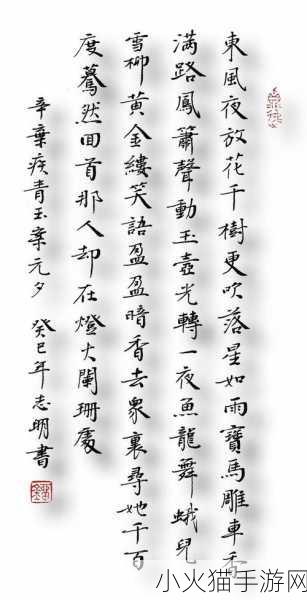 東風夜放花千樹更吹落星如雨寶馬雕車香
满路鳳簫聲動玉壺光轉一夜魚龍舞蛾兒
雪柳黃金縷笑語盈盈暗香去衆裏尋她千百
度驀然回首那人却在燈火闌珊處
辛棄疾青玉案元夕 癸巳年志明書
小火猫手游网